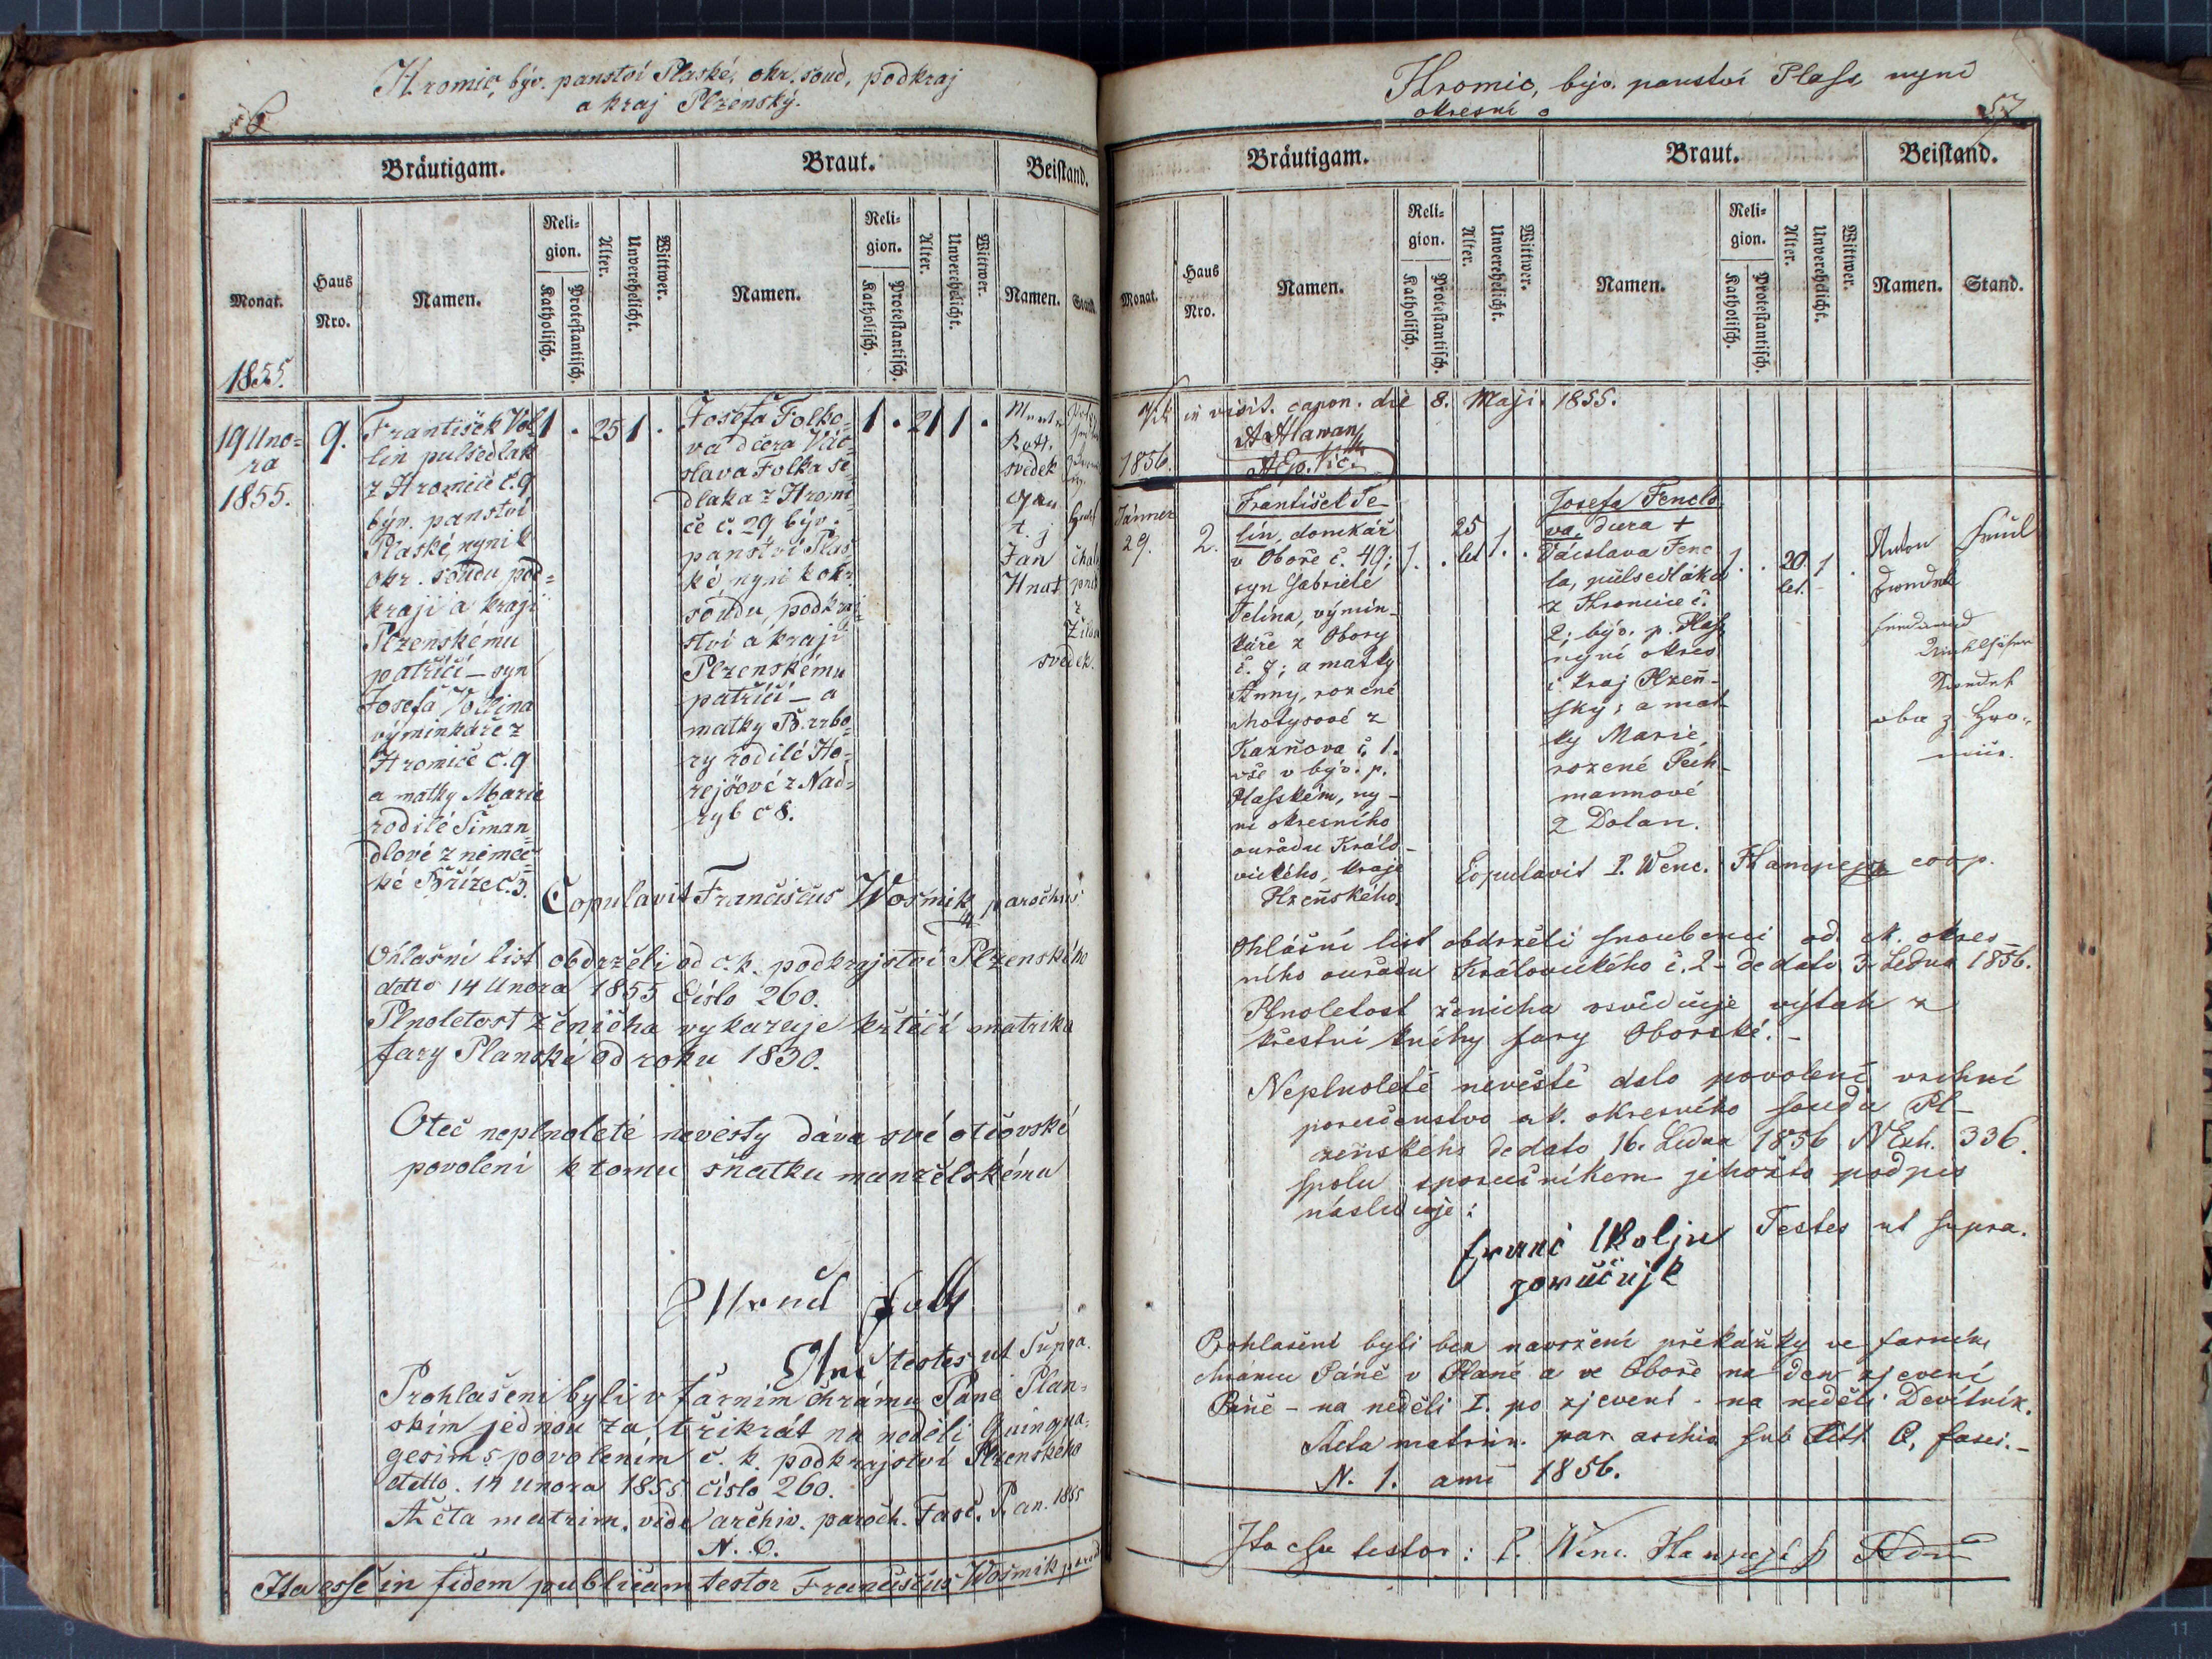 Hromic, býv. panství Plaské, okr. soud, podkraj
a kraj Plzenský.
Bräutigam.
Braut.
Beistand.
Monat.
Haus
Nro.
Namen.
Reli-
gion.
Katholisch.
Protestantisch.
Alter.
Unverehelicht.
Wittwer.
Namen.
Reli-
gion.
Katholisch.
Protestantisch.
Alter.
Unverehelicht.
Wittwer.
Namen.
Stand.
1855.
19 Uno-
ra
1855.
9.
František Vol
lin pulsedlak
z Hromic č. 9
býv. panství
Plaské, nyni k
okr. soudu, pod-
kraji a kraji
Plzenskému
patřící – syn
Josefa Vollina
výminkáře z
Hromic č. 9
a matky Marie
rodilé Siman
dlové z němec-
ké Břízec. 3.
1 . 25 1 .
Josefa Folko-
va dcera Vác-
slava Folka se
dlaka z Hromi
ce č. 29 býv.
panství Plas
ké nyni k okr.
soudu, podkraj
ství a kraji
Plzenskému
patřící – a
matky Barbo
ry rodilé Ho-
rejšové z Nad-
ryb č 8.
1 . 21 1 .
svedek
Jan
Hnat
svedek.
Copulavit Franciscus Wosmik parochus
Ohlašní list obdrzěli od c. k. podkrajství Plzenského
detto 14 Unora 1855 číslo 260.
Plnoletost ženicha vykazuje křticí matrika
fary Planské od roku 1830.
Oteč neplnoleté nevěsty dáva své otčovské
povoleni k tomu sňatku manželskému
testes ut Supra.
Prohlašeni byli v farnim chrámu Páně Plan-
skim jednou za třikrát na neděli Quinqua-
gesim s povolením c. k. podkrajství Plzenského
detto. 14 Unora 1855 číslo 260.
Acta matrim. vide archiv. paroch. Fasc. P. an. 1855
N. 6.
Ita esse in fidem publicam testor Franciscus Wosmik
Hromic, býv. panství Plass, nyní
okresní
57
Bräutigam.
Braut.
Beistand.
Monat.
Haus
Nro.
Namen.
Reli-
gion.
Katholisch.
Protestantisch.
Alter.
Unverehelicht.
Wittwer.
Namen.
Reli-
gion.
Katholisch.
Protestantisch.
Alter.
Unverehelicht.
Wittwer.
Namen.
Stand.
in visit. canon. die 8. Maji. 1855.
1856.
Jänner
29.
2.
František Te-
lín, domkář
v Oboře č. 49;
syn Gabriele
Telína, výmin-
káře z Obory
č. 7; a matky
Anny, rozené
Motysové z
Kaznova č. 1.
vše v býv. p.
Plasském, ny-
ní okresního
ouřadu Králo-
vického, kraje
Plzeňského.
1. .
25
let
1. .
Josefa Fenclo
va, dcera +
Václava Fenc
la, půlsedláka
z Hromice č.
2; býv. p. Plass
nyní okres
i kraj Plzeň-
ský; a mat
ky Marie,
rozené Pech-
mannové
z Dolan.
1. .
20.
let.
1 .
Anton
oba z Hro-
mic.
Copulavit P. Wenc. Hampejs coop.
Ohlášní list obdrzěli snoubenci od ck. okres-
ního ouřadu Královického č. 2 – de dato 3. Ledna 1856.
Plnoletost ženicha osvědčuje výtah z
křestní knihy fary Oborské. –
Neplnoleté nevěstě dalo povolení vrchní
poručenstvo ck. okresního soudu Pl-
zeňského de dato 16. Ledna 1856 N Exh. 336.
spolu s poručníkem jehožto podpis
následuje:
Testes ut supra.
Prohlašeni byli bez navržení překážky ve farním
chrámu Páně v Plané a ve Oboře na den zjevení
Páně – na neděli I. po zjevení – na neděli Devítník.
Acta matrim. par. archiv sub Litt. C, fasci. –
N. 1. anni 1856.
Ita esse testor: P. Wenc. Hampejs